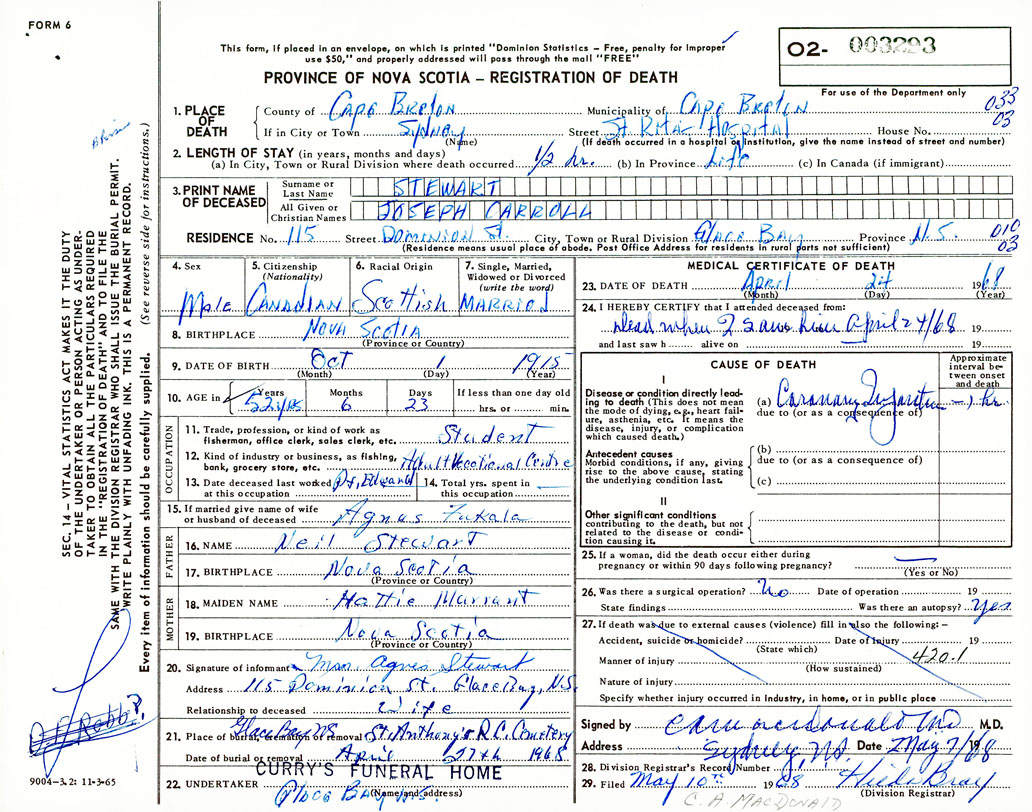 FORM 6
This form, if placed in an envelope, on which is printed "Dominion Statistics – Free, penalty for improper
use $50," and properly addressed will pass through the mail "FREE"
PROVINCE OF NOVA SCOTIA – REGISTRATION OF DEATH
O2- 003293
For use of the Department only
033
03
1. PLACE OF DEATH
County of Cape Breton Municipality of Cape Breton
If in City or Town Sydney Street St Ritas Hospital House No.
(Name) (If death occurred in a hospital or institution, give the name instead of street and number)
2. LENGTH OF STAY (in years, months and days)
(a) In City, Town or Rural Division where death occurred 1/2 hr. (b) In Province Life (c) In Canada (if immigrant)
3. PRINT NAME OF DECEASED
Surname or Last Name STEWART
All Given or Christian Names JOSEPH CARROLL
RESIDENCE No. 115 Street Dominion St. City, Town or Rural Division Glace Bay Province N.S.
(Residence means usual place of abode. Post Office Address for residents in rural parts not sufficient)
010
03
4. Sex Male
5. Citizenship (Nationality) Canadian
6. Racial Origin Scottish
7. Single, Married, Widowed or Divorced (write the word) Married
8. BIRTHPLACE Nova Scotia
(Province or Country)
9. DATE OF BIRTH Oct 1 1915
(Month) (Day) (Year)
10. AGE in Years 52 yrs Months 6 Days 23 If less than one day old hrs. or min.
OCCUPATION
11. Trade, profession, or kind of work as fisherman, office clerk, sales clerk, etc. Student
12. Kind of industry or business, as fishing, bank, grocery store, etc. Adult Vocational Centre
13. Date deceased last worked at this occupation Pt. Edward
14. Total yrs. spent in this occupation
15. If married give name of wife or husband of deceased Agnus
FATHER
16. NAME Neil Stewart
17. BIRTHPLACE Nova Scotia
(Province or Country)
MOTHER
18. MAIDEN NAME Hattie
19. BIRTHPLACE Nova Scotia
(Province or Country)
20. Signature of informant Mrs. Agnes Stewart
Address 115 Dominion St. Glace Bay, N.S.
Relationship to deceased Wife
21. Place of burial, cremation or removal Glace Bay NS St. Anthony's R.C. Cemetery
Date of burial or removal April 27th 1968
22. UNDERTAKER CURRY'S FUNERAL HOME
Glace Bay N.S.
(Name and address)
MEDICAL CERTIFICATE OF DEATH
23. DATE OF DEATH April 24 1968
(Month) (Day) (Year)
24. I HEREBY CERTIFY that I attended deceased from:
Dead when I saw him April 24/68 19
and last saw h alive on 19
CAUSE OF DEATH
Approximate interval between onset and death
I
Disease or condition directly leading to death (This does not mean the mode of dying, e.g., heart failure, asthenia, etc. It means the disease, injury, or complication which caused death.)
(a) Coronary Infarction – 1 hr.
due to (or as a consequence of)
Antecedent causes
Morbid conditions, if any, giving rise to the above cause, stating the underlying condition last.
(b)
due to (or as a consequence of)
(c)
II
Other significant conditions
contributing to the death, but not related to the disease or condition causing it.
25. If a woman, did the death occur either during pregnancy or within 90 days following pregnancy?
(Yes or No)
26. Was there a surgical operation? No Date of operation 19
State findings Was there an autopsy? Yes
27. If death was due to external causes (violence) fill in also the following: –
Accident, suicide or homicide? Date of injury 19
(State which)
Manner of injury 420.1
(How sustained)
Nature of injury
Specify whether injury occurred in industry, in home, or in public place
Signed by MD M.D.
Address Sydney, N.S. Date May 7/1968
28. Division Registrar's Record Number
29. Filed May 10th 1968 Bray
(Division Registrar)
C. A. MACDONALD
SEC. 14 – VITAL STATISTICS ACT MAKES IT THE DUTY
OF THE UNDERTAKER OR PERSON ACTING AS UNDER-
TAKER TO OBTAIN ALL THE PARTICULARS REQUIRED
IN THE "REGISTRATION OF DEATH" AND TO FILE THE
SAME WITH THE DIVISION REGISTRAR WHO SHALL ISSUE THE BURIAL PERMIT.
WRITE PLAINLY WITH UNFADING INK. THIS IS A PERMANENT RECORD.
Every item of information should be carefully supplied. (See reverse side for instructions.)
9004-3.2: 11-3-65